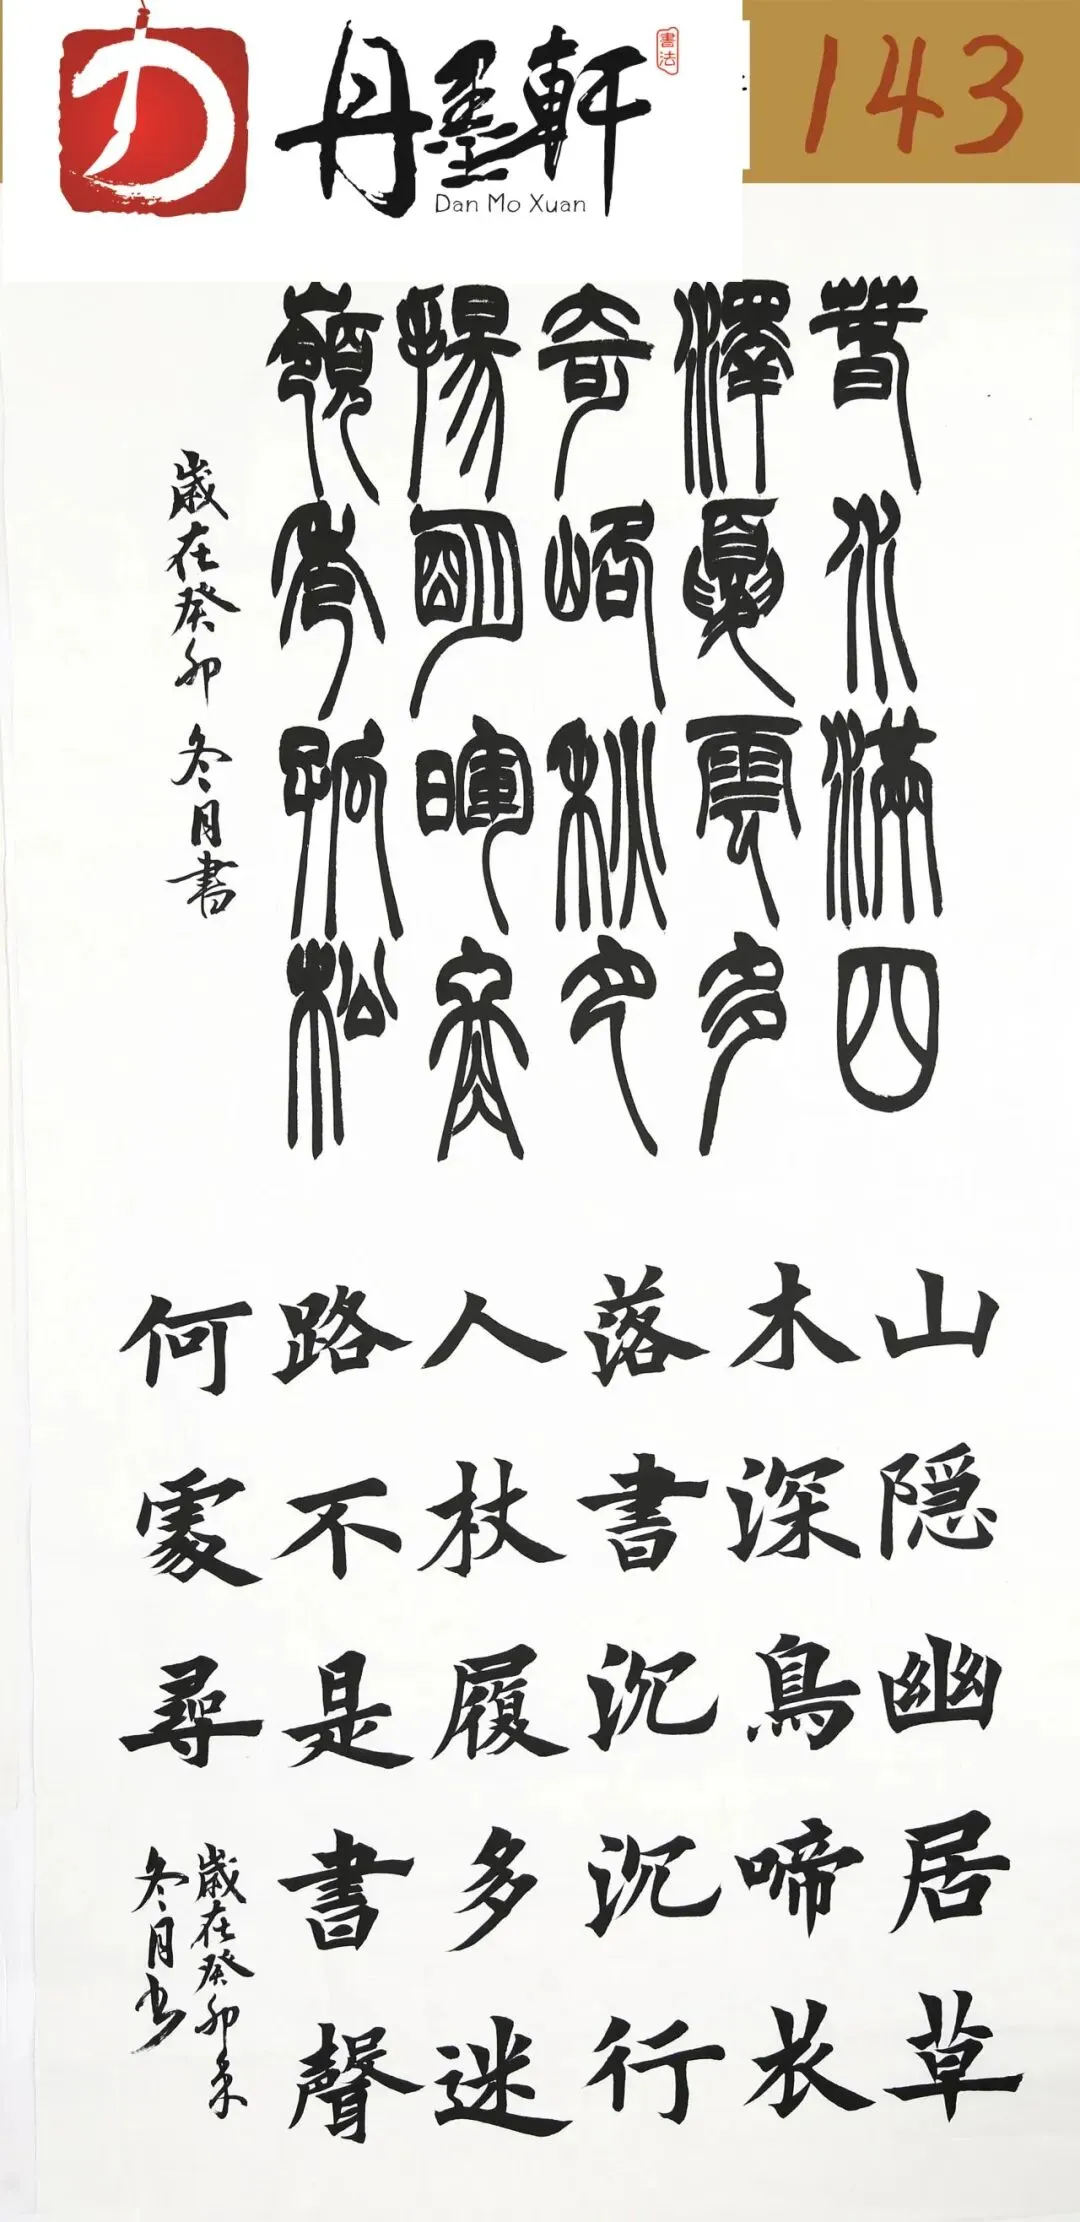 丹墨軒
書法
Dan Mo Xuan
143
春水滿四
澤夏雲多
奇峰秋月
揚明暉冬
嶺秀孤松
歲在癸卯冬月書
山隐幽居草
木深鳥啼衣
落書沉沉行
人杖履多迷
路不是書聲
何處尋
歲在癸卯年
冬月书